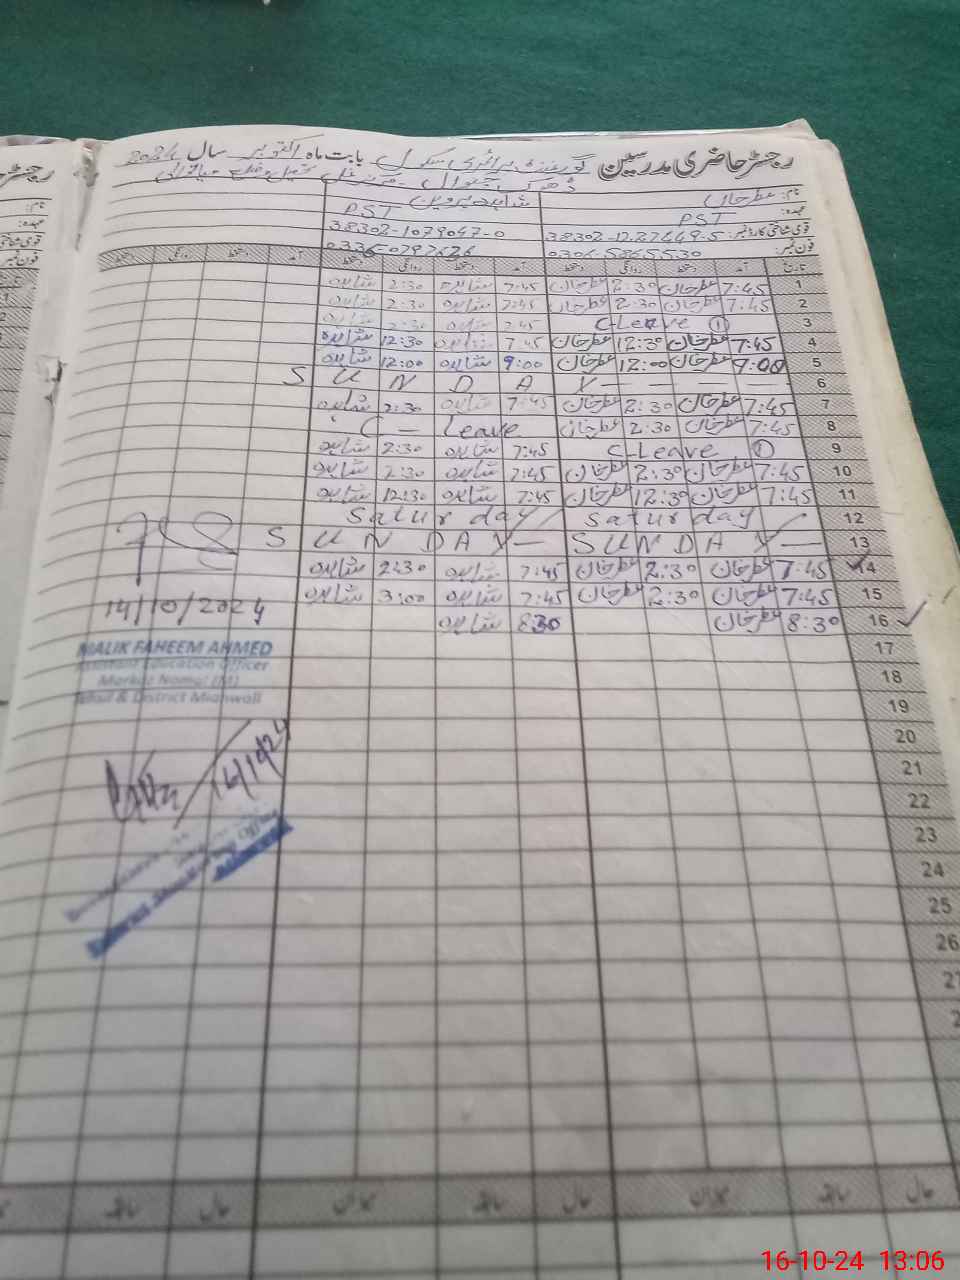 رجسٹر حاضری مدرسین گورنمنٹ پرائمری سکول بابت ماہ اکتوبر سال 2024
نام: عطر خان شاہدہ پروین
عہدہ: PST PST
قومی شناختی کارڈ نمبر: 38302-1227449-5 38302-1079047-0
فون نمبر: 0306 5865530 0336 0797626
تاریخ آمد دستخط روانگی دستخط آمد دستخط روانگی دستخط آمد دستخط روانگی دستخط
1 7:45 عطر خان 2:30 عطر خان 7:45 شاہدہ 2:30 شاہدہ
2 7:45 عطر خان 2:30 عطر خان 7:45 شاہدہ 2:30 شاہدہ
3 C-Leave ① 7:45 شاہدہ 2:30 شاہدہ
4 7:45 عطر خان 12:30 عطر خان 7:45 شاہدہ 12:30 شاہدہ
5 9:00 عطر خان 12:00 عطر خان 9:00 شاہدہ 12:00 شاہدہ
6 S U N D A Y — — — —
7 7:45 عطر خان 2:30 عطر خان 7:45 شاہدہ 2:30 شاہدہ
8 7:45 عطر خان 2:30 عطر خان C — Leave
9 C-Leave ① 7:45 شاہدہ 2:30 شاہدہ
10 7:45 عطر خان 2:30 عطر خان 7:45 شاہدہ 2:30 شاہدہ
11 7:45 عطر خان 12:30 عطر خان 7:45 شاہدہ 12:30 شاہدہ
12 Saturday Saturday
13 SUNDAY — SUNDAY —
14 7:45 عطر خان 2:30 عطر خان 7:45 شاہدہ 2:30 شاہدہ
15 7:45 عطر خان 2:30 عطر خان 7:45 شاہدہ 3:00 شاہدہ
16 8:30 عطر خان 8:30 شاہدہ
17
18
19
20
21
22
23
24
25
26
14/10/2024
MALIK FAHEEM AHMED
Assistant Education Officer
Markaz Namal (M)
Tehsil & District Mianwali
16/10/24
حال سابقہ میزان حال سابقہ میزان حال سابقہ
رجسٹر
نام:
عہدہ:
قومی شناختی کارڈ
فون نمبر
16-10-24 13:06